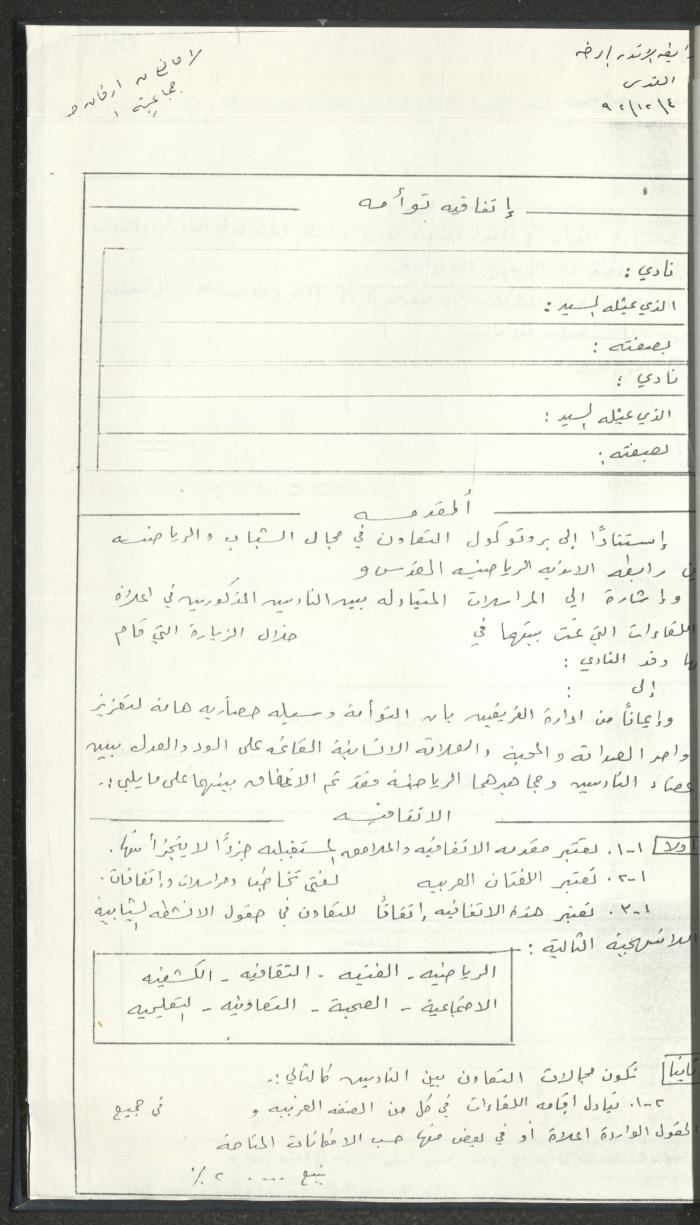 رابطة الاندية الرياضية
القدس
٩٢/١٢/٤
إتفاقيه توأمه
نادي :
الذي يمثله السيد :
بصفته :
نادي :
الذي يمثله السيد :
بصفته :
المقدمه
إستنادًا إلى بروتوكول التعاون في مجال الشباب والرياضه
بين رابطه الانديه الرياضيه القدس و
وإشارة الى المراسلات المتبادله بين الناديين المذكورين في اعلاه
اللقاءات التي تمت بينهما في خلال الزيارة التي قام
بها وفد النادي :
إلى :
وإيمانًا من ادارة الفريقين بان التوأمة وسيله حضاريه هامة لتعزيز
اواصر الصداقه والمحبة والعلاقه الانسانية القائمه على الود والعدل بين
اعضاء الناديين وجماهيرهما الرياضية فقد تم الاتفاق بينهما على ما يلي :-
الاتفاقيه
اولا ١-١. تعتبر مقدمه الاتفاقيه والملاحق المستقبليه جزءًا لا يتجزأ منها.
١-٢. تعتبر اللغتان العربيه لغتي تخاطب ومراسلات وإتفاقات.
١-٣. تعتبر هذه الاتفاقيه إتفاقًا للتعاون في حقول الانشطه الشبابية
اللامنهجية التالية :
الرياضيه - الفنيه - الثقافيه - الكشفيه
الاجتماعية - الصحية - التعاونيه - التعليميه
ثانيا تكون مجالات التعاون بين الناديين كالتالي :-
٢-١. تبادل اقامه اللقاءات في كل من الضفه الغربيه و في جميع
الحقول الواردة اعلاه أو في بعض منها حسب الامكانات المتاحة
يتبع .... ٢/.